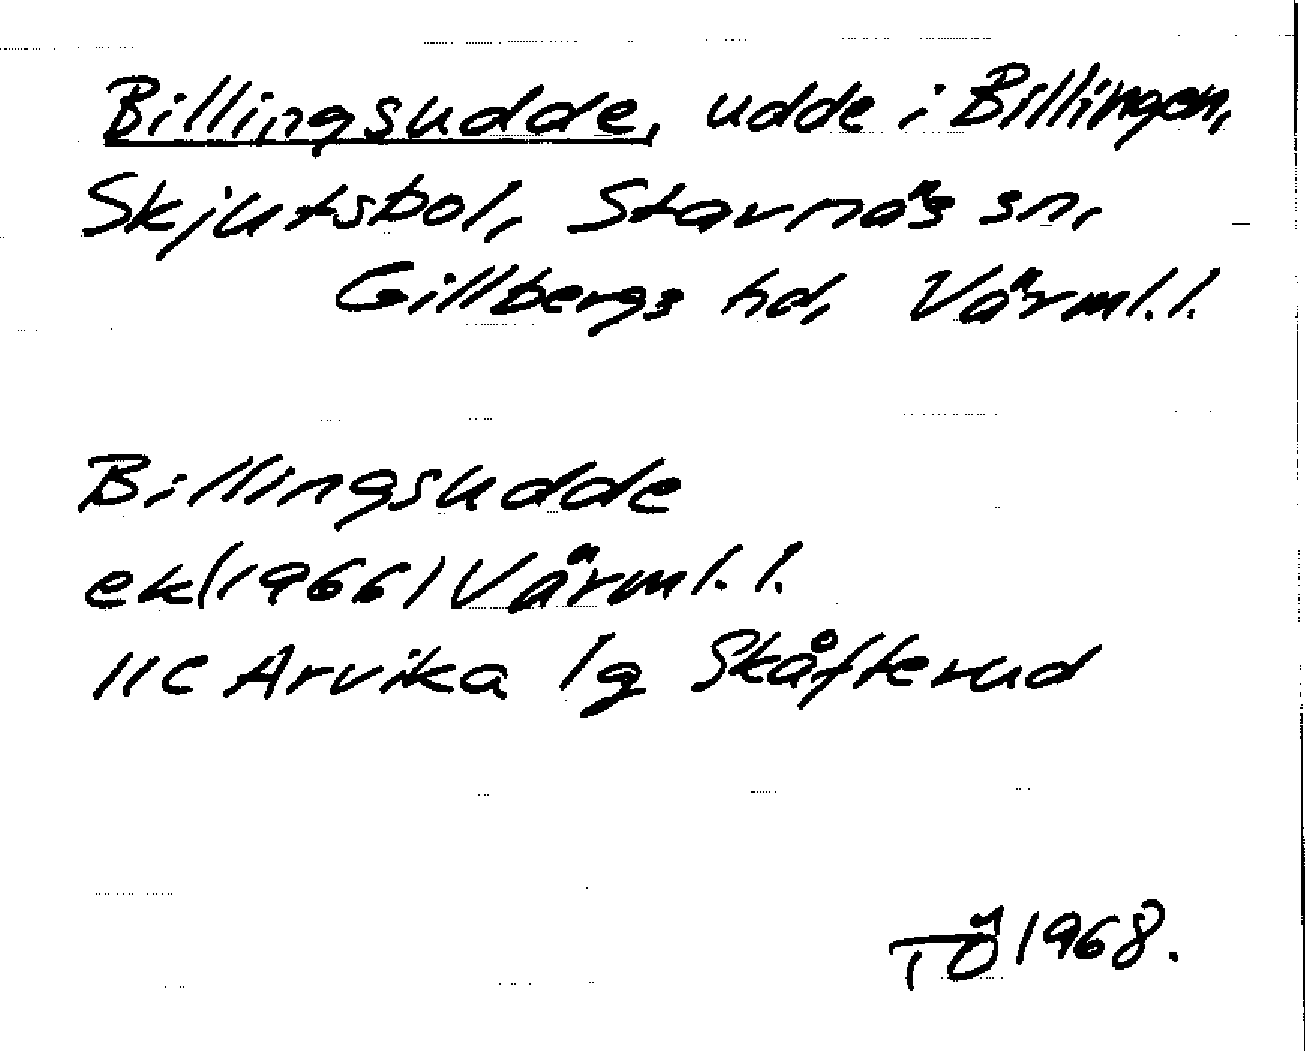 Billingsudde, udde i Billingen,
Skjutsbol, Stavnäs sn,
Gillbergs hd, Värml. l.
Billingsudde
ek (1966) Värml. l.
11C Arvika 1g Skåfterud
TÖ 1968.